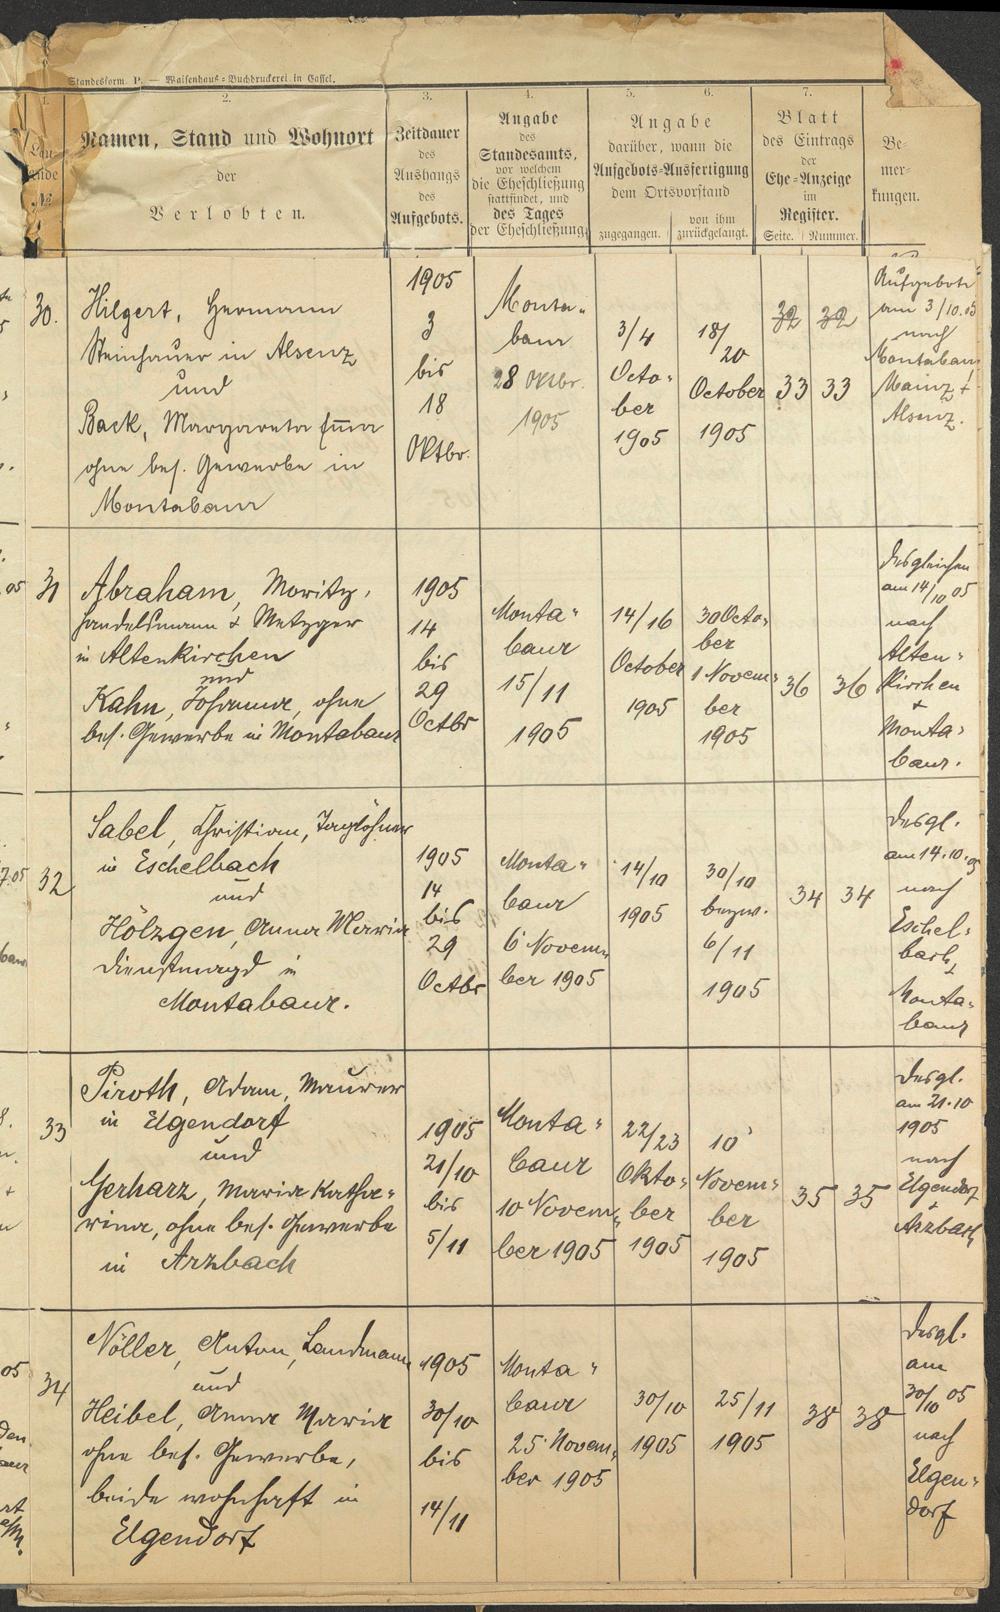 Standesform. P. — Waisenhaus-Buchdruckerei in Cassel.
1.
Lau-
fende
№
2.
Namen, Stand und Wohnort
der
Verlobten.
3.
Zeitdauer
des
Aushangs
des
Aufgebots.
4.
Angabe
des
Standesamts,
vor welchem
die Eheschließung
stattfindet, und
des Tages
der Eheschließung.
5. 6.
Angabe
darüber, wann die
Aufgebots-Ausfertigung
dem Ortsvorstand
zugegangen.
von ihm
zurückgelangt.
7.
Blatt
des Eintrags
der
Ehe-Anzeige
im
Register.
Seite. Nummer.
Be-
mer-
kungen.
30.
Hilgert, Hermann
Steinhauer in Alsenz
und
Back, Margareta Emma
ohne bes. Gewerbe in
Montabaur
1905
3
bis
18
Oktbr.
Monta-
baur
28 Oktbr.
1905
3/4
Octo-
ber
1905
18/
20
October
1905
32 32
33 33
Aufgebote
am 3/10.05
nach
Montabaur
Mainz +
Alsenz.
31
Abraham, Moritz,
Handelsmann & Metzger
in Altenkirchen
und
Kahn, Johanna, ohne
bes. Gewerbe in Montabaur
1905
14
bis
29
Octbr
Monta-
baur
15/11
1905
14/16
October
1905
30 Octo-
ber
1 Novem-
ber
1905
36 36
desgleichen
am 14/10 05
nach
Alten-
kirchen
+
Monta-
baur.
32
Sabel, Christian, Taglöhner
in Eschelbach
und
Hölzgen, Anna Maria
Dienstmagd in
Montabaur.
1905
14
bis
29
Octbr
Monta-
baur
6 Novem-
ber 1905
14/10
1905
30/10
bezw.
6/11
1905
34 34
desgl.
am 14.10.05
nach
Eschel-
bach,
Monta-
baur
33
Piroth, Adam, Maurer
in Elgendorf
und
Gerharz, Maria Katha-
rina, ohne bes. Gewerbe
in Arzbach
1905
21/10
bis
5/11
Monta-
baur
10 Novem-
ber 1905
22/23
Okto-
ber
1905
10
Novem-
ber
1905
35 35
desgl.
am 21.10
1905
nach
Elgendorf
+
Arzbach
34
Nöller, Anton, Landmann
und
Heibel, Anna Maria
ohne bes. Gewerbe,
beide wohnhaft in
Elgendorf
1905
30/10
bis
14/11
Monta-
baur
25 Novem-
ber 1905
30/10
1905
25/11
1905
38 38
desgl.
am
30/10 05
nach
Elgen-
dorf